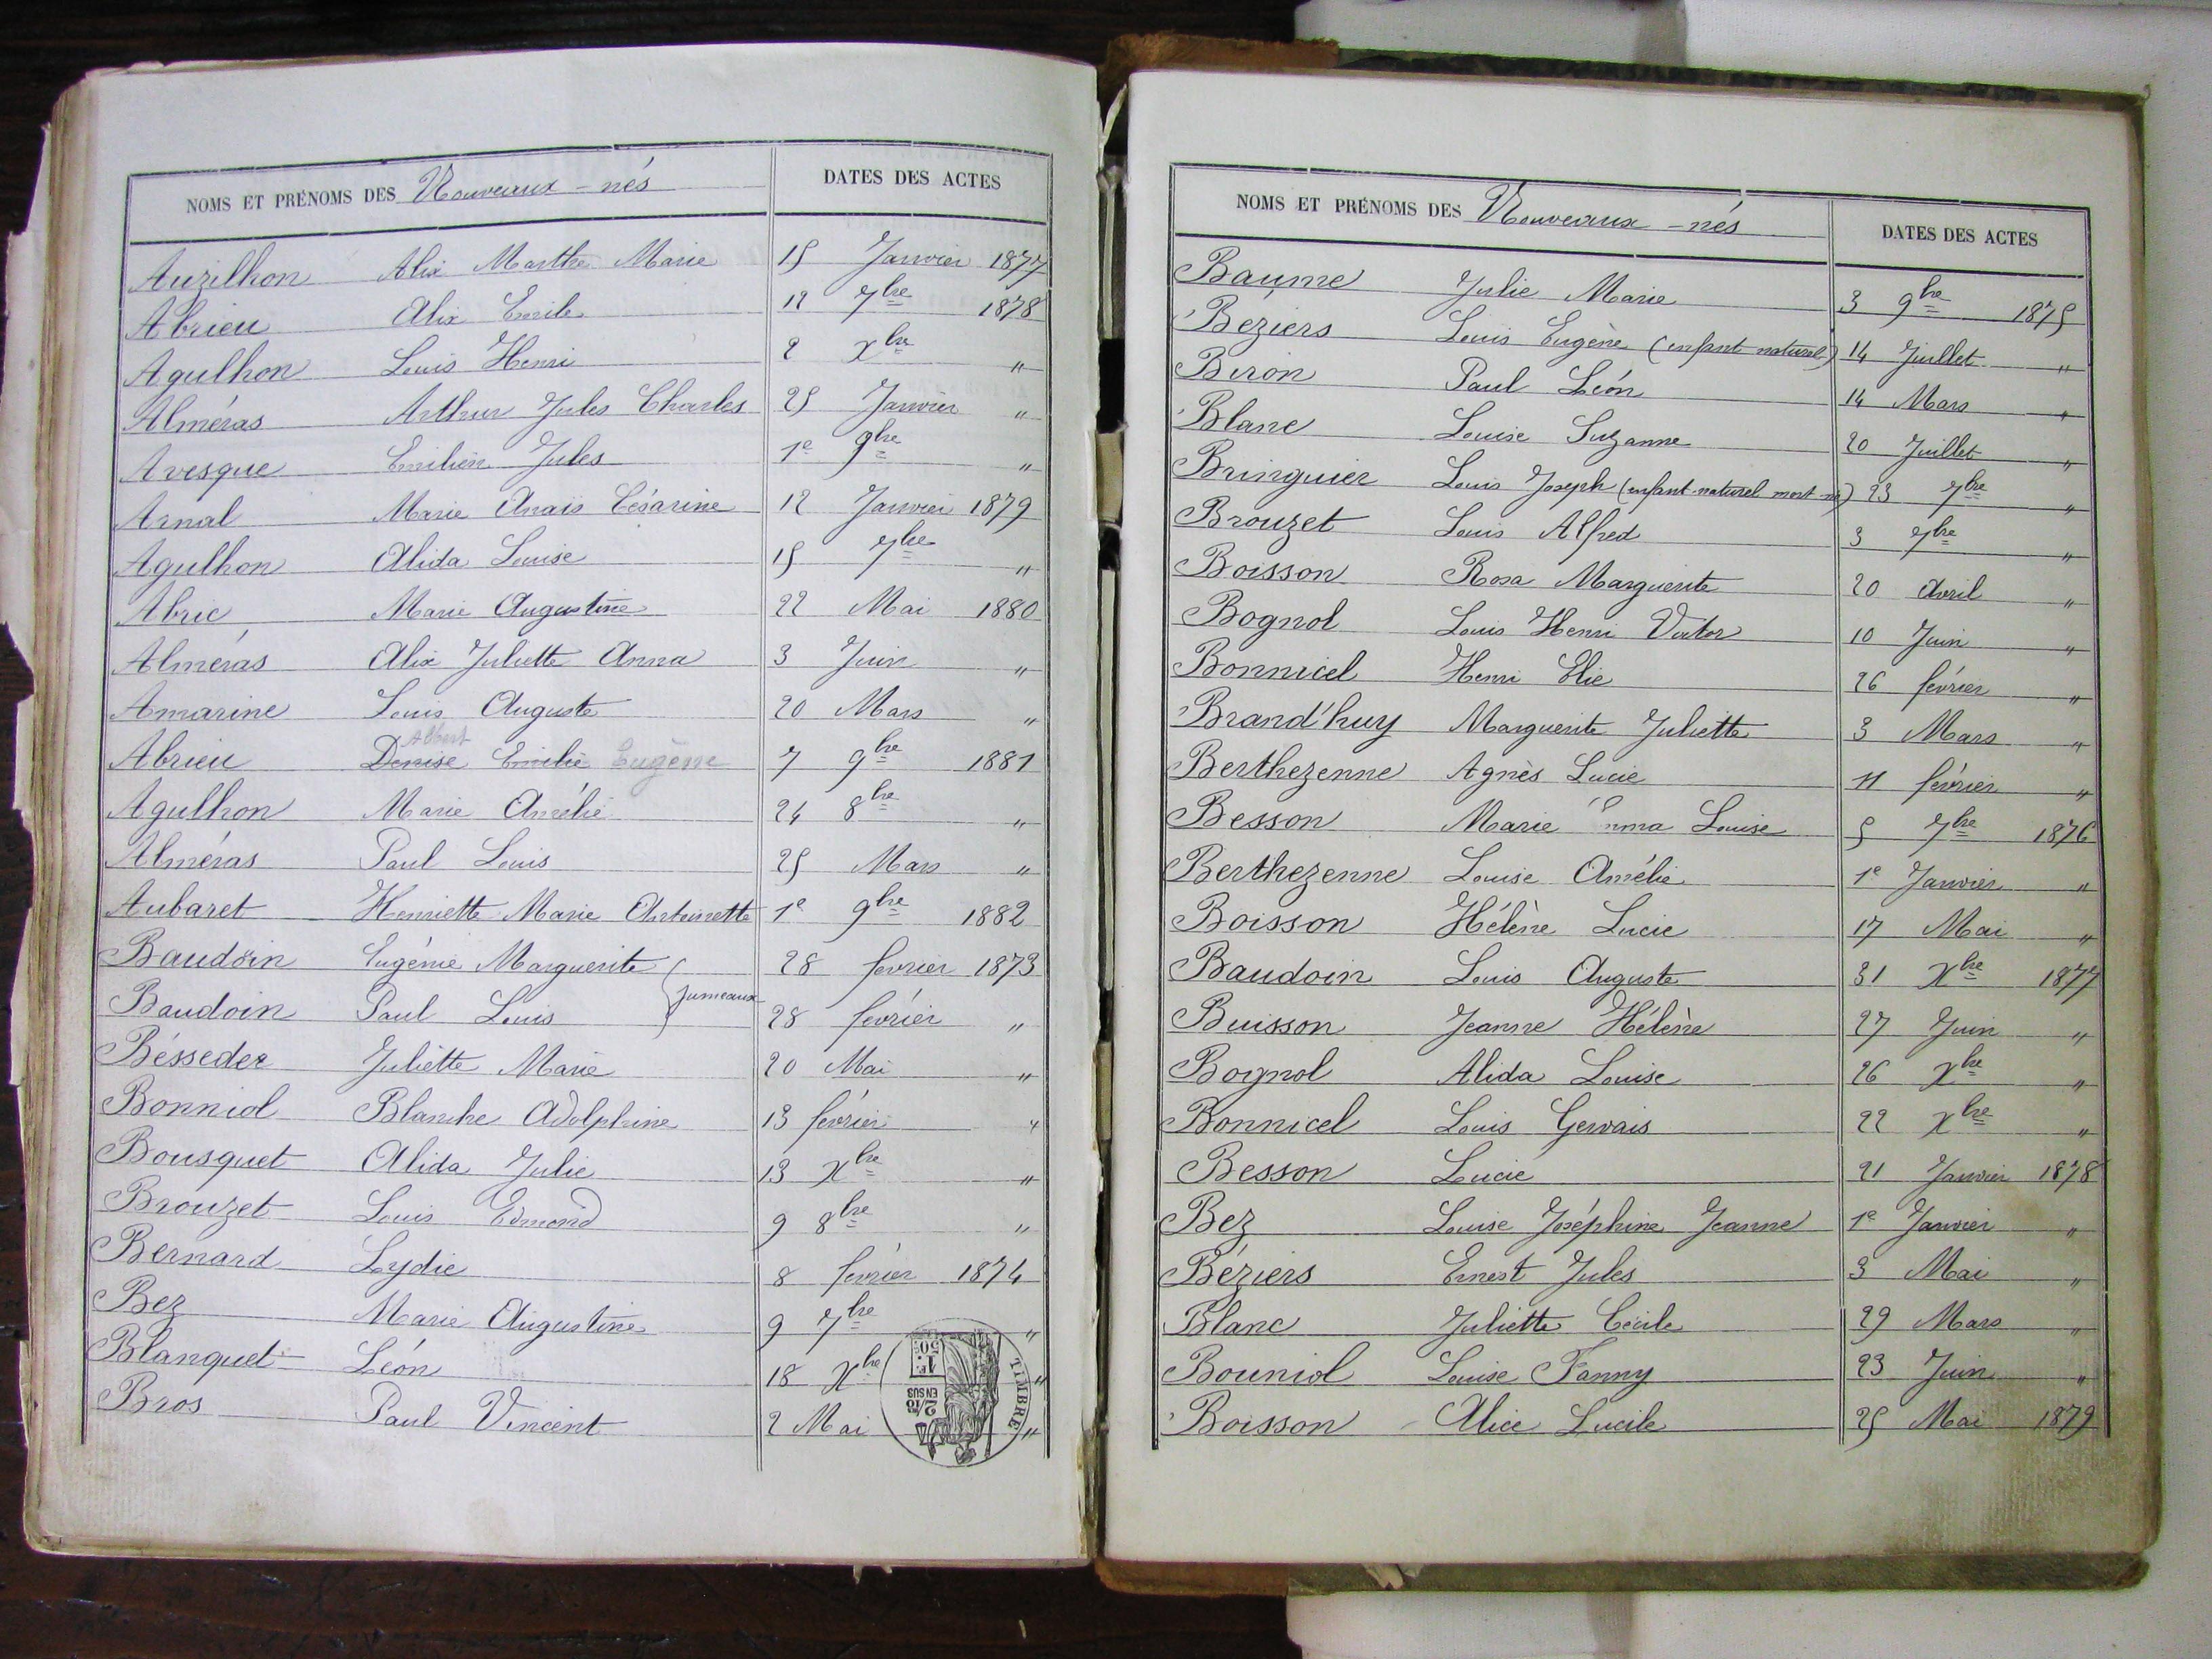 NOMS ET PRÉNOMS DES Nouveaux-nés DATES DES ACTES
Auzilhon Alix Marthe Marie 15 Janvier 1877
Abrieu Alix Emile 12 7bre 1878
Agulhon Louis Henri 2 Xbre "
Alméras Arthur Jules Charles 25 Janvier "
Avesque Emilien Jules 1e 9bre "
Arnal Marie Anaïs Césarine 12 Janvier 1879
Agulhon Alida Louise 15 7bre "
Abric Marie Augustine 22 Mai 1880
Alméras Alix Juliette Anna 3 Juin "
Amarine Louis Auguste 20 Mars "
Albert
Abrieu Denise Emilie Eugène 7 9bre 1881
Agulhon Marie Amélie 24 8bre "
Alméras Paul Louis 25 Mars "
Aubaret Henriette Marie Antoinette 1e 9bre 1882
Baudoin Eugénie Marguerite 28 fevrier 1873
jumeaux
Baudoin Paul Louis 28 février "
Bésseder Juliette Marie 20 Mai "
Bonniol Blanche Adolphine 13 février "
Bousquet Alida Julie 13 Xbre "
Brouzet Louis Edmond 9 8bre "
Bernard Lydie 8 février 1874
Bez Marie Augustine 9 7bre "
Blanquet Léon 18 Xbre "
Bros Paul Vincent 2 Mai "
TIMBRE
1F. 50c.
2/10 EN SUS
NOMS ET PRÉNOMS DES Nouveaux-nés DATES DES ACTES
Baume Julie Marie 3 9bre 1875
Beziers Louis Eugène (enfant naturel) 14 Juillet "
Biron Paul Léon 14 Mars "
Blanc Louise Suzanne 20 Juillet "
Bringuier Louis Joseph (enfant naturel mort-né) 23 7bre "
Brouzet Louis Alfred 3 7bre "
Boisson Rosa Marguerite 20 Avril "
Bognol Louis Henri Victor 10 Juin "
Bonnicel Henri Elie 26 février "
Brand'huy Marguerite Juliette 3 Mars "
Berthezenne Agnès Lucie 11 février "
Besson Marie Emma Louise 5 7bre 1876
Berthezenne Louise Amélie 1e Janvier "
Boisson Hélène Lucie 17 Mai "
Baudoin Louis Auguste 31 Xbre 1877
Buisson Jeanne Hélène 27 Juin "
Bognol Alida Louise 26 Xbre "
Bonnicel Louis Gervais 22 Xbre "
Besson Lucie 21 Janvier 1878
Bez Louise Joséphine Jeanne 1e Janvier "
Béziers Ernest Jules 3 Mai "
Blanc Juliette Cécile 29 Mars "
Bouniol Louise Fanny 23 Juin "
Boisson Alice Lucile 25 Mai 1879